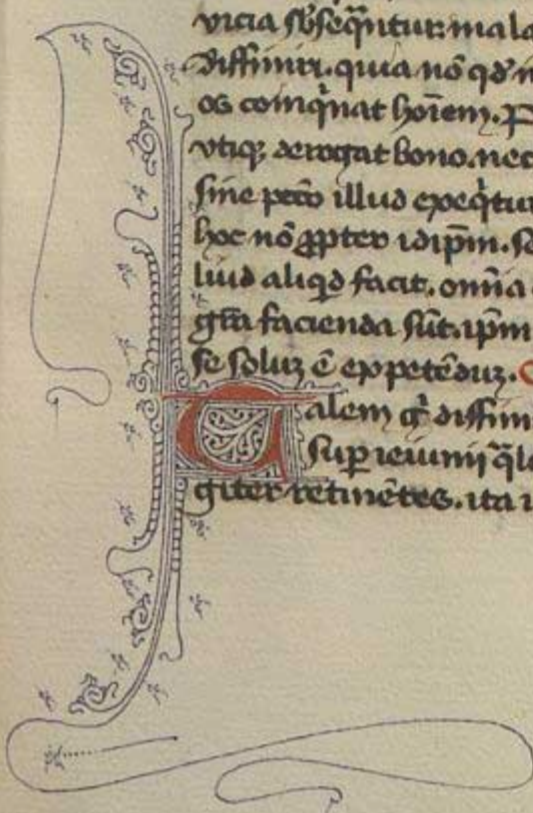 vicia sb̄seqn̄tur. mala
diffiniri. quia nō qd' i
os coinq̄nat hoīem. P
vtiq; derogat bono. nec
sine pctō illud exeq̄tur
hoc nō ꝓpter idip̄m. s
liud aliqd facit. omīa
gr̄a facienda sūt. ip̄m
se soluz ē expetēduz.
Talem g̊ diffini
sup ieiunij q̄l
giter retinētes. ita i